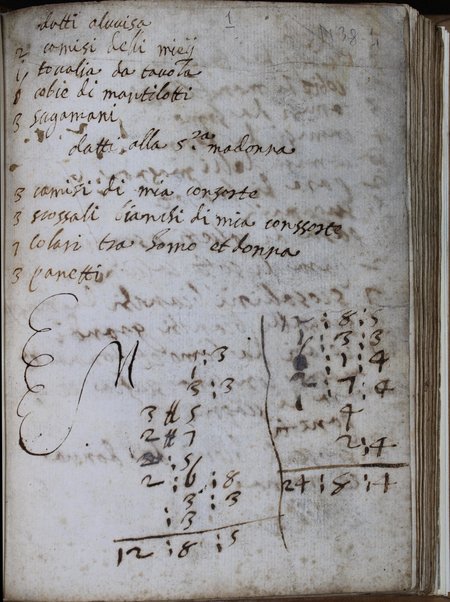 1
datti aluuisa
2 camisi delli miej
1 tovalia da tavola
8 cobie di mantilotti
3 sugamani
datti alla s.ra madonna
3 camisi di mia consorte
3 scossali bianchi di mia conssorte
7 colari tra homo et donna
3 panetti
1 : 3
3 : 3
3 # 5
2 # 7
: 5
2 : 6 : 8
3 : 3
: 3
12 : 8 : 5
: 8 : 5
: 3 : 3
: 1 : 4
: 7 : 4
4
2 : 4
24 : 8 : 1